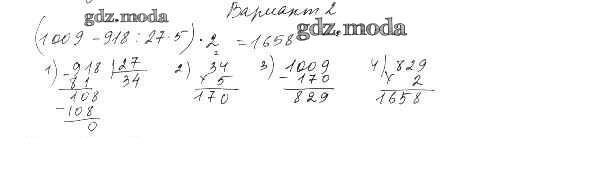 Вариант 2
gdz.moda
gdz.moda
(1009 - 918 : 27 · 5) · 2 = 1658
1) 918 | 27
81 34
108
-108
0
2) 34
× 5
170
3) 1009
- 170
839
4) 829
× 2
1658